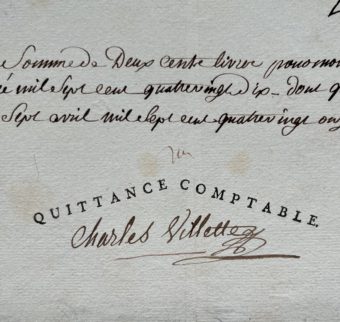 Somme de Deux cents livres pour mon
mil Sept cent quatrevingt dix dont q
Sept avril mil Sept cent quatrevingt on
QUITTANCE COMPTABLE.
Charles Villette